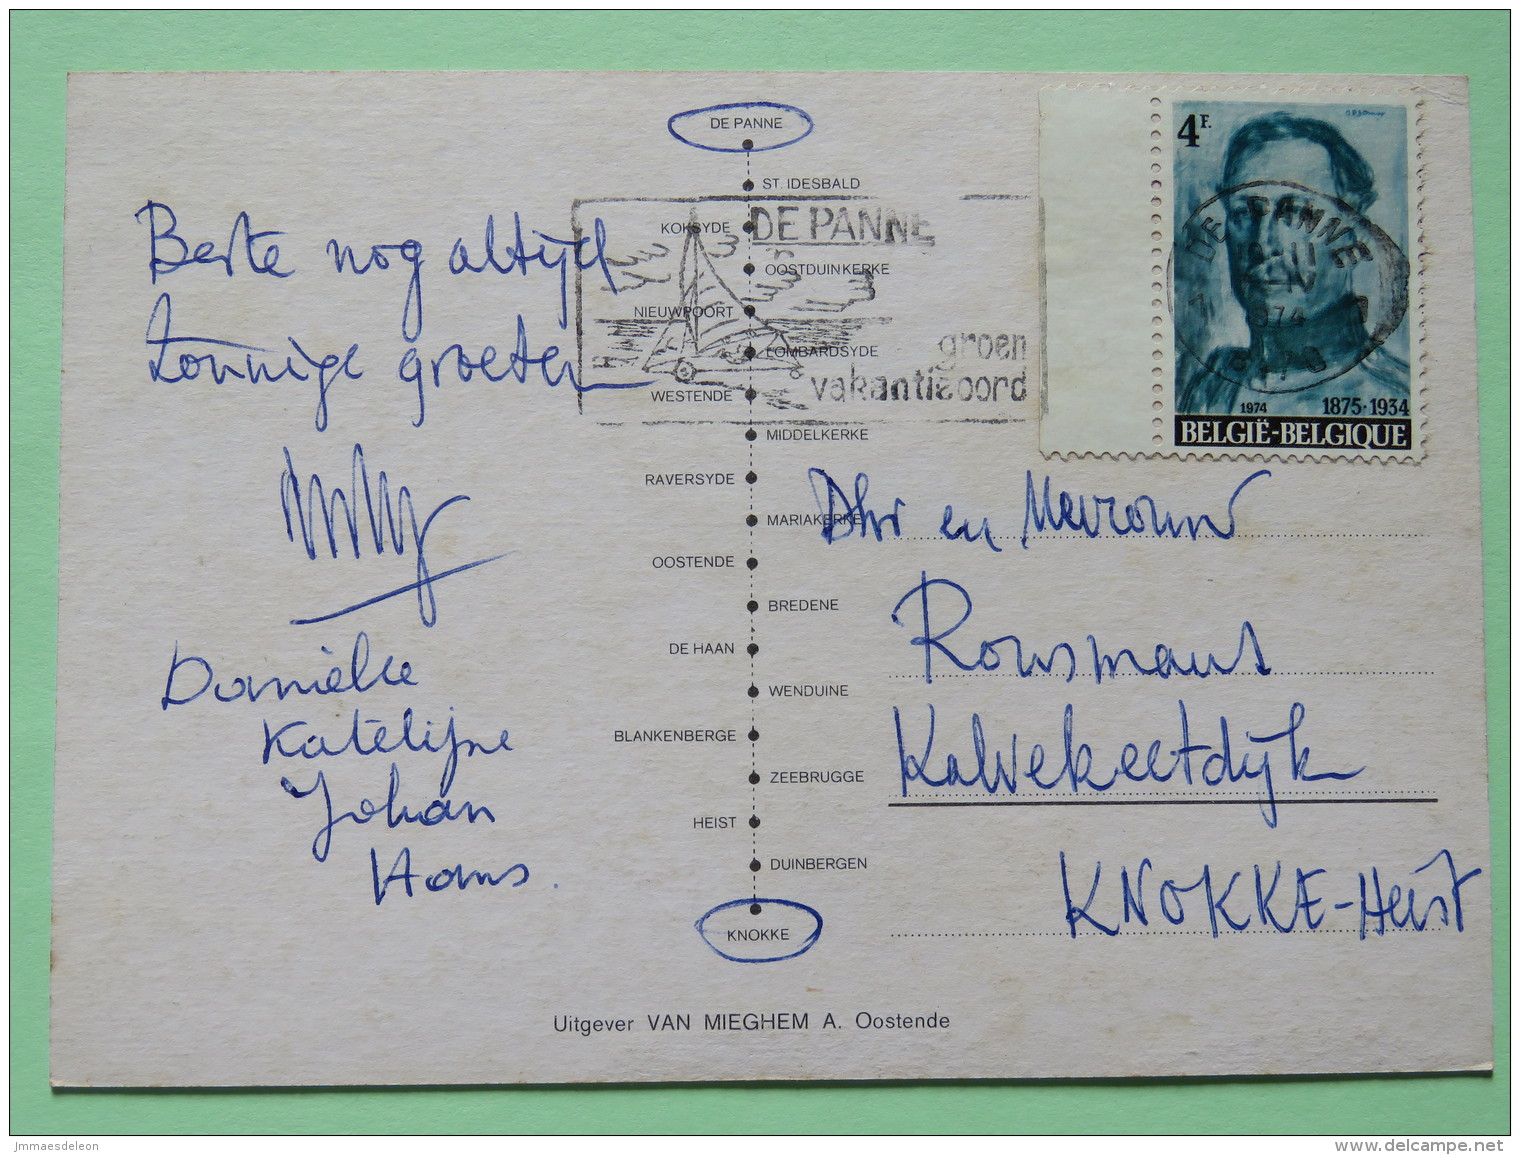 DE PANNE
ST. IDESBALD
KOKSYDE
OOSTDUINKERKE
NIEUWPOORT
LOMBARDSYDE
WESTENDE
MIDDELKERKE
RAVERSYDE
MARIAKERKE
OOSTENDE
BREDENE
DE HAAN
WENDUINE
BLANKENBERGE
ZEEBRUGGE
HEIST
DUINBERGEN
KNOKKE
Beste nog altijd
zonnige groeten
Willy
Danièlle
Katelijne
Johan
Hans.
DE PANNE
groen
vakantieoord
4F.
DE PANNE
1974
1974
1875·1934
BELGIË-BELGIQUE
Dhr en Mevrouw
Rousmans
Kalvekeetdijk
KNOKKE-Heist
Uitgever VAN MIEGHEM A. Oostende
jmmaesdeleon
www.delcampe.net